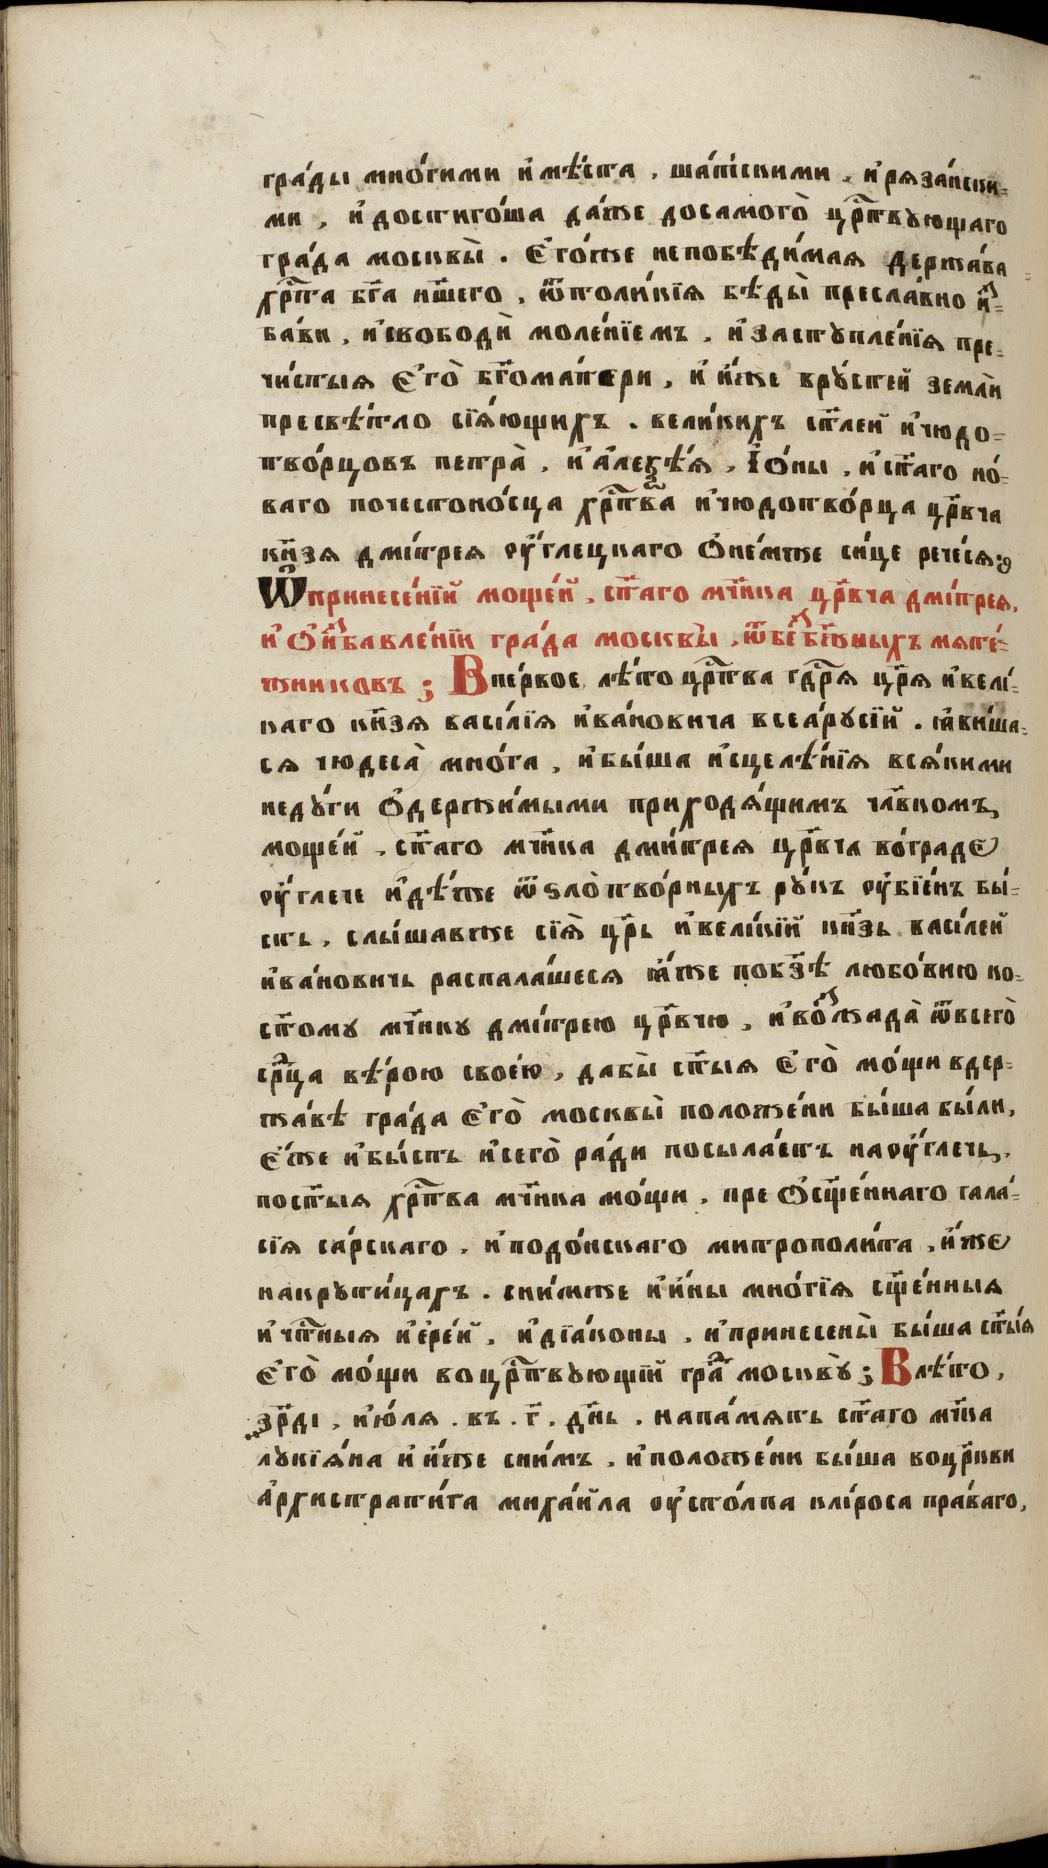 гра́ды мно́гими и҆мѣ́ста , ша́тскими , и҆рѧза́нски-
ми , и҆достиго́ша да́же досамого̀ црⷭ҇твꙋющаго
гра́да москвы̀ . Є҆го́же непобѣди́маѧ держа́ва
хрⷭ҇та бг҃а нш҃его , ѿтоли́кїѧ бѣды̀ пресла́вно и҆ꙁ-
ба́ви , и҆свободѝ моле́нїемъ , и҆застꙋпле́нїѧ пре-
чи́стыѧ Є҆го̀ бг҃ома́тери , и҆ и҆́же врꙋ́стей землѝ
пресвѣ́тло сїѧ́ющихъ . вели́кихъ ст҃лей и҆чюдо-
тво́рцовъ петра̀ , и҆а҆леѯѣ́ѧ , І҆о́ны , и҆ст҃аго но́-
ваго почестоно́сца хрⷭ҇тва̀ и҆чюдотво́рца црⷭ҇вча
кн҃зѧ дми́треѧ ᲂу҆́глецкаго Ѻ҆не́мже си́це рече́сѧ :
Ѿпринесе́нїй моще́й , ст҃аго мч҃нка црⷭ҇вча дми́треѧ ,
и҆ Ѻ҆и҆ꙁбавле́нїи гра́да москвы̀ , ѿбеꙁбо́жныхъ мѧте́-
жниковъ ; Впе́рвое лѣ́то црⷭ҇тва гдⷭ҇рѧ црⷭ҇ѧ и҆вели́-
каго кн҃зѧ васи́лїѧ и҆ва́новича всеѧ́рꙋсїй . ꙗ҆ви́ша-
сѧ чюдеса̀ мно́га , и҆бы́ша и҆сцелѣ́нїѧ всѧ́кими
недꙋ́ги Ѻ҆держи́мыми приходѧ́щимъ чл҃вкомъ ,
моще́й , ст҃аго мч҃нка дми́треѧ црⷭ҇вча во́граде
ᲂу҆́глече и҆дѣ́же ѿѕло̀тво́рныхъ рꙋ́къ ᲂу҆бїе́нъ бы́-
сть , слы́шавже сїѧ̀ црⷭ҇ь и҆вели́кїй кн҃зь васи́лей
и҆ва́новичь распала́шесѧ ꙗ҆́же побз҃ѣ любо́вию ко-
ст҃омꙋ мч҃нкꙋ дми́трею црⷭ҇вчю , и҆воꙁжада̀ ѿвсего̀
срⷣца вѣ́рою свое́ю , дабы̀ ст҃ыѧ Є҆го̀ мо́щи вдер-
жа́вѣ гра́да Є҆го̀ москвы̀ положе́ни бы́ша бы́ли ,
Є҆́же и҆бы́сть и҆сего̀ ра́ди посыла́етъ наᲂу҆́глечь ,
пост҃ыѧ хрⷭ҇тва мч҃нка мо́щи , пре Ѻ҆сщ҃е́ннаго гала́-
сїѧ са́рскаго , и҆подо́нскаго митрополи́та , и҆́же
накрꙋти́цахъ . сни́мже и҆и҆́ны мно́гїѧ сщ҃е́нныѧ
и҆чтⷭ҇ныѧ и҆ере́й , и҆дїа́коны , и҆принесены̀ бы́ша ст҃ы́ѧ
Є҆го̀ мо́щи воцрⷭ҇твꙋющїй гра́ⷣ москвꙋ̀ ; Влѣ́то ,
҂зр҃ді , и҆ю́лѧ . въ . г҃ . дн҃ь . напа́мѧть ст҃аго мч҃нка
лꙋкїѧ́на и҆ и҆́же сни́мъ . и҆положе́ни бы́ша воцр҃кви
а҆рхистрати́га миха́йла ᲂу҆сто́лпа кли́роса пра́ваго ,